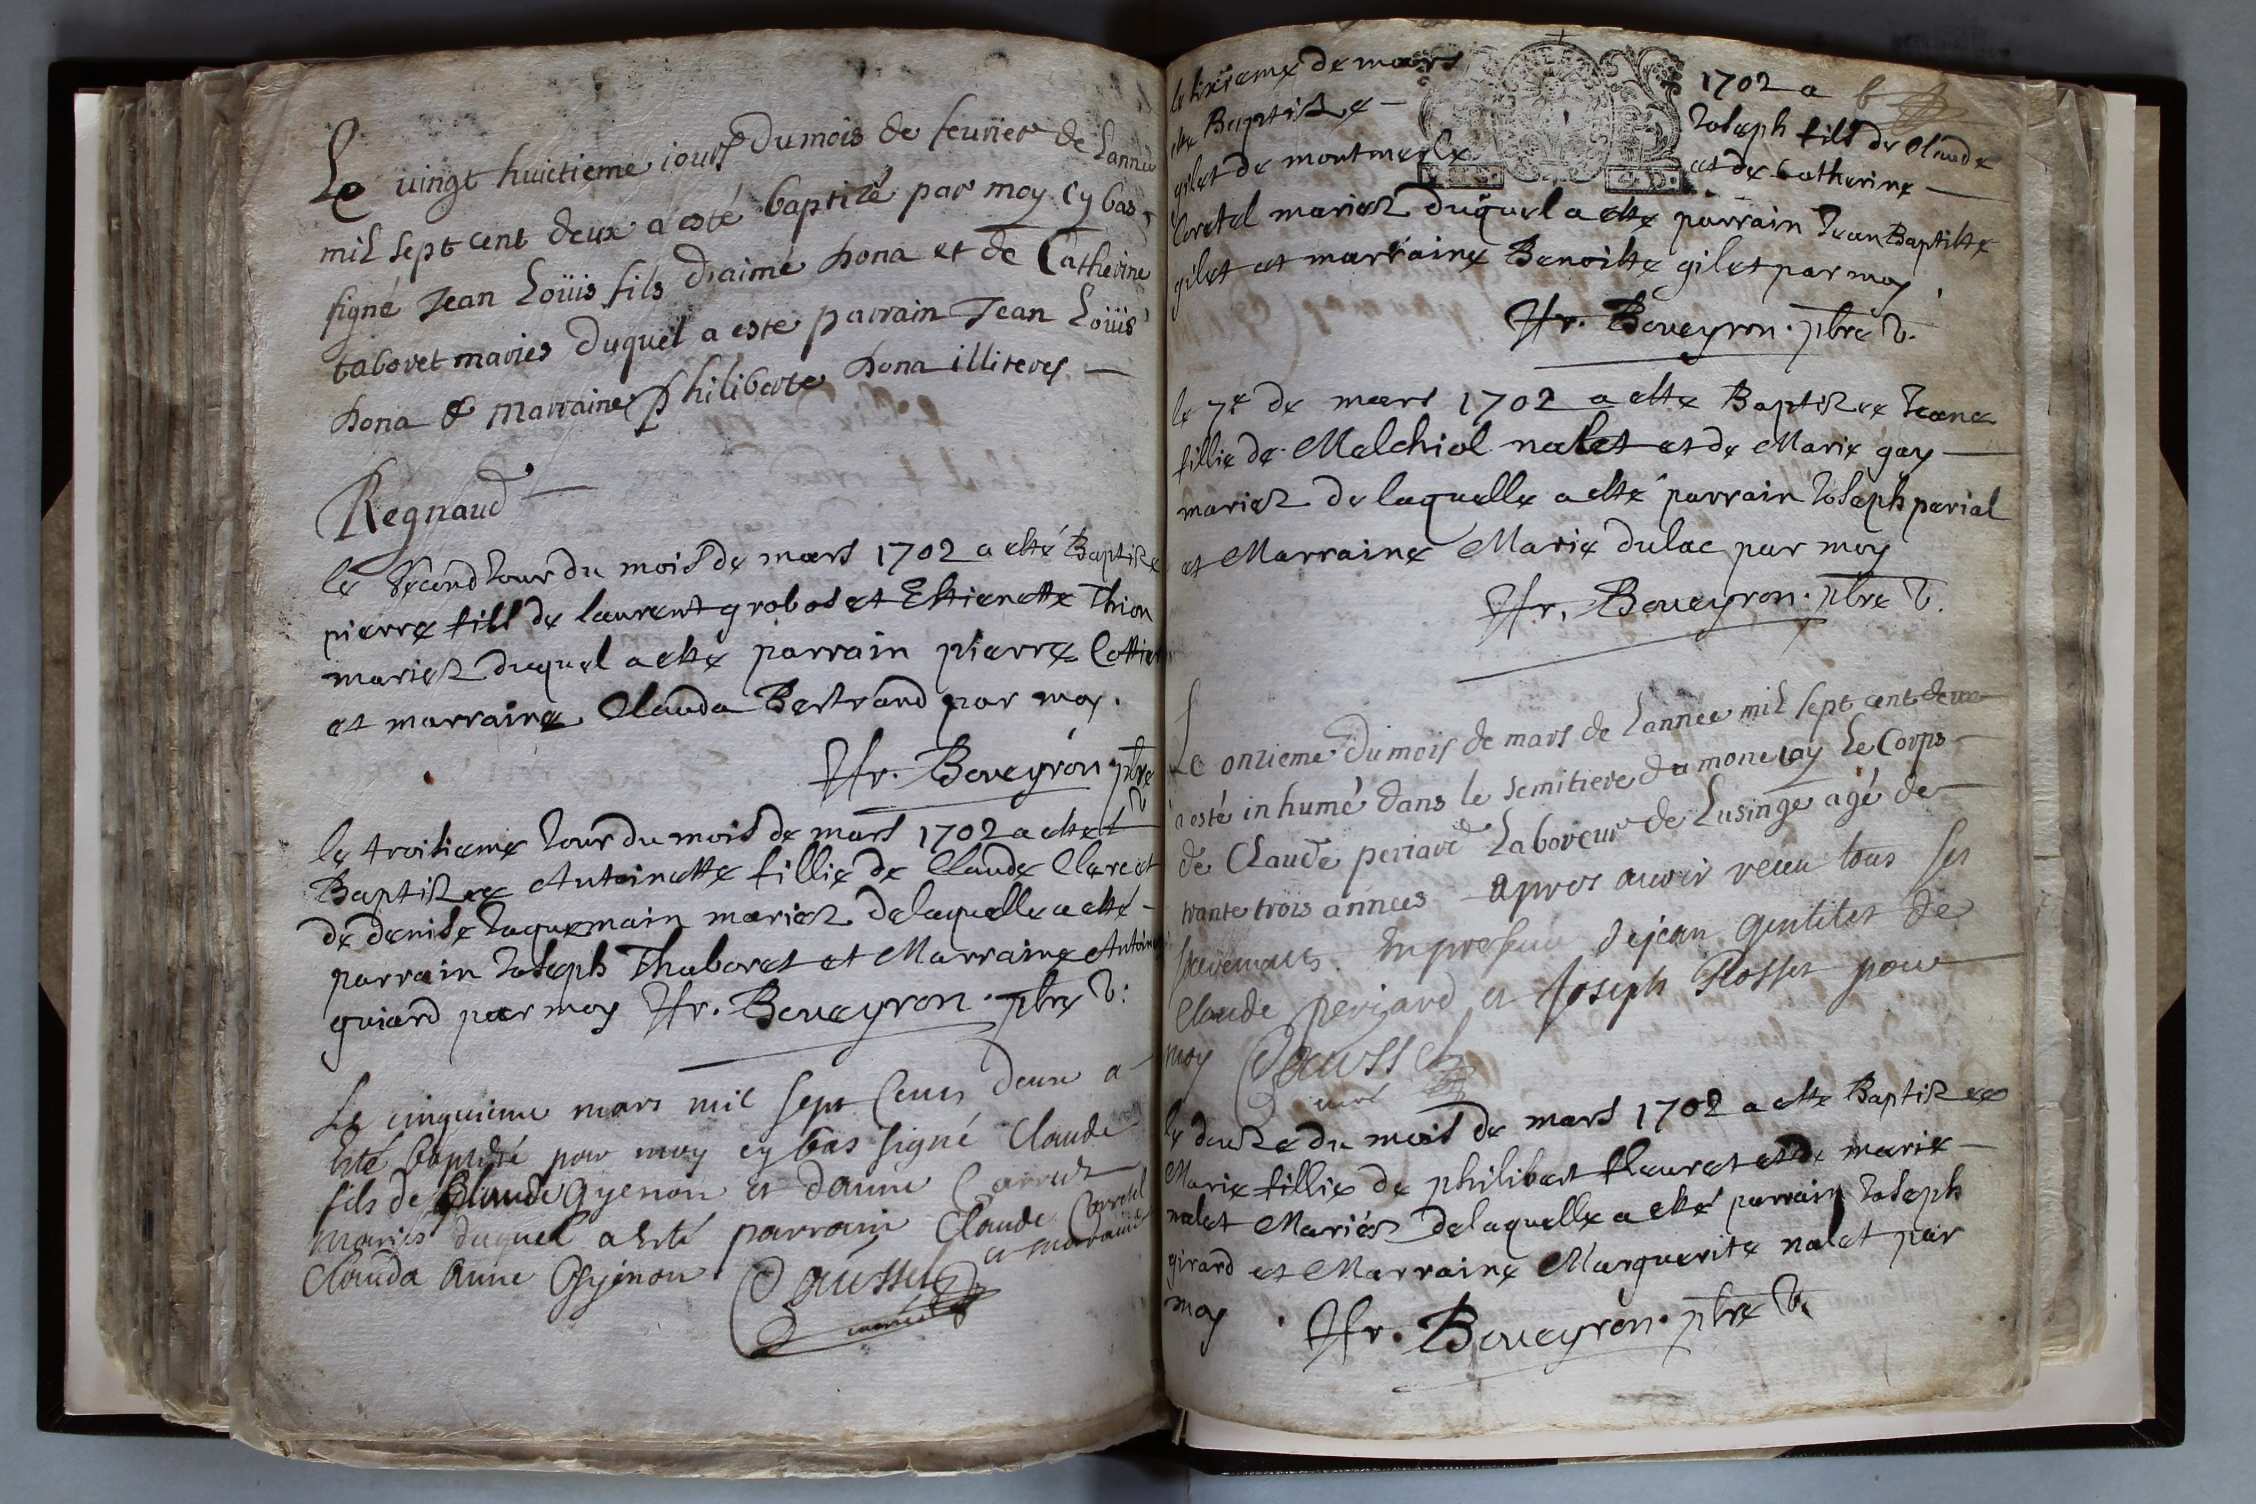 Le vingt huictieme iour du mois de feurier de Lannee
mil sept cent deux a esté baptizé par moy cy bas
signé Jean Loüis fils d'aimé dona et de Catherine
taboret maries duquel a esté parrain Jean Loüis
dona & marraine philiberte dona illiteres
Regnaud
le second Jour du mois de mars 1702 a esté Baptize
pierre fils de laurent grobos et Estienette Thion
mariez duquel a este parrain pierre Cottier
et marraine Clauda Bertrand par moy.
Fr. Boueyron. pbre
V
le troisieme Jour du mois de mars 1702 a este
Baptizee Antoinette fillie de Claude Clere et
de denise Jaquemain mariez delaquelle a esté
parrain Joseph Thaboret et Marraine Antoin
guiard par moy Fr. Boueyron. pbre V.
Le cinquieme mars mil sept cens deux a
esté baptisé par moy cy bas signé Claude
fils de Claude Gyenon et danne Carret
maries duquel a esté parrain Claude Corretel
et maraine
Clauda Anne Gyenon
Dausset
curé
le sixieme de mars 1702 a
ete Baptize Joseph fils de Claude
gilet de montmerle et de Catherine
Coretel mariez duquel a este parrain Jean Baptiste
gilet et marraine Benoiste gilet par moy
Fr. Boueyron. pbre V.
le 7e de mars 1702 a este Baptizee Jeane
fillie de Melchiol nalet et de Marie gay
mariez de laquelle a esté parrain Joseph perial
et Marraine Marie dulac par moy
Fr. Boueyron. pbre V.
Le onzieme du mois de mars de Lannee mil sept cent deux
a esté inhumé dans le semitiere du moncray Le Corps
de Claude periard Laboreur de Lusinge agé de
trante trois annees apres auoir receu tous ses
sacremens en presence de jean gentilet de
Claude periard et Joseph Rosset par
moy Dausset
curé
le douze du mois de mars 1702 a este Baptizee
Marie fillie de philibert fleuret et de marie
nalet Mariés delaquelle a esté parrain Joseph
girard et Marraine Marguerite nalet par
moy Fr. Boueyron. pbre V.